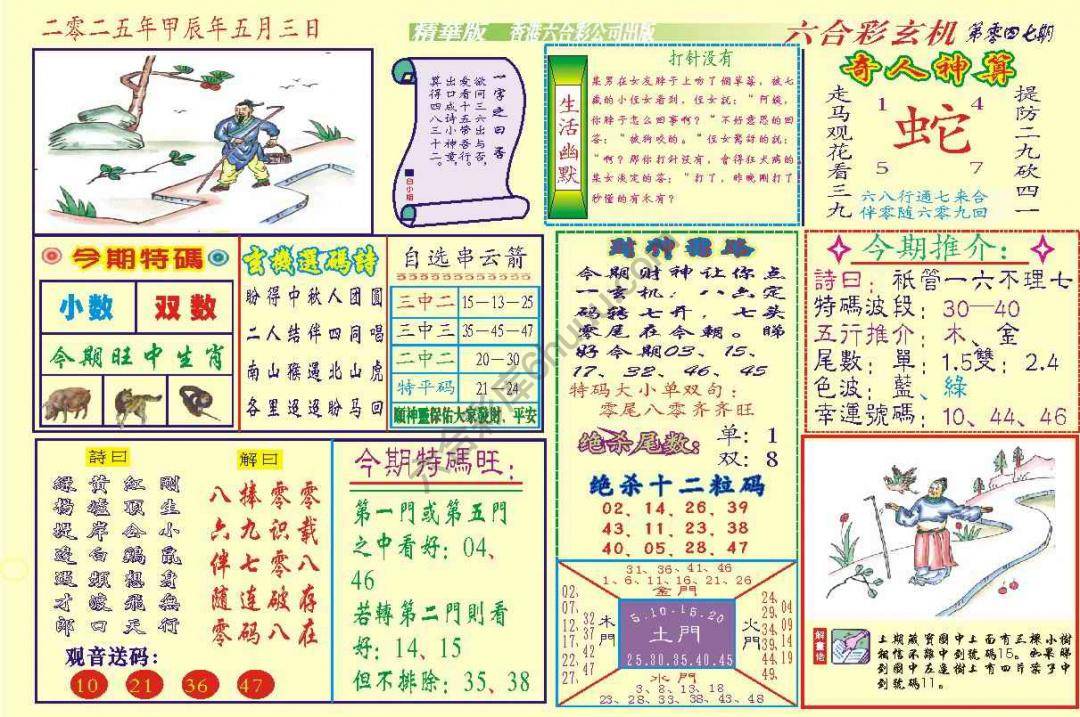 二零二五年甲辰年五月三日
精華版 香港六合彩公司出版
六合彩玄机 第零四七期
一字之曰：否
欲问三六出与否，
爱看十五此吾行。
出口成诗小神童，
算得四八三十二。
白小姐
生活幽默
打针没有
某男在女友脖子上吻了個草莓，被七
歲的小侄女看到，侄女説："阿姨，
你脖子怎么回事啊？"不好意思的回
答："被狗咬的。"侄女驚訝的説：
"啊？那你打针没有，會得狂犬病的
某女淡定的答："打了，昨晚剛打了
秒懂的有木有？
奇人神算
走马观花看三九
1 4
蛇
5 7
提防二九砍四一
六八行通七来合
伴零随六零九回
今期特碼
小数 双数
今期旺中生肖
玄機選碼詩
盼得中秋人团圓
二人结伴四同唱
南山猴遇北山虎
各里逕逕盼马回
自选串云箭
三中二 15—13—25
三中三 35—45—47
二中二 20—30
特平码 21—24
順神靈保佑大家發財、平安
財神報路
今期财神让你点
一玄机，八六定
码转七开，七头
零尾在今朝。睇
好今期03、15、
17、32、46、45
特码大小单双句：
零尾八零齐齐旺
绝杀尾数： 单：1
双：8
绝杀十二粒码
02、14、26、39
43、11、23、38
40、05、28、47
今期推介：
詩曰：祇管一六不理七
特碼波段：30—40
五行推介：木、金
尾數：單：1.5雙：2.4
色波：藍、綠
幸運號碼：10、44、46
詩曰
綠楊堤邊遇才郎
黄爐岸白頻波口
红頂公鷄想飛天
剛生小鼠身無行
解曰
八捧零零
六九识载
伴七零八
随连破存
零码八在
观音送码：
10 21 36 47
今期特碼旺：
第一門或第五門
之中看好：04、
46
若轉第二門則看
好：14、15
但不排除：35、38
31、36、41、46
1、6、11、16、21、26
金門
02、07、12、17、22、27、
32、37、42、47
木門
5.10.15.20
土門
25.30.35.40.45
火門
24、29、34、39、44、49、
04、09、14、19
水門
3、8、13、18
23、28、33、38、43、48
解畫佬
上期藏寶圖中上面有三棵小樹
相信不難中到號碼15。如果睇
到圖中左邊樹上有四片葉子中
到號碼11。
六合彩库6huwu.com